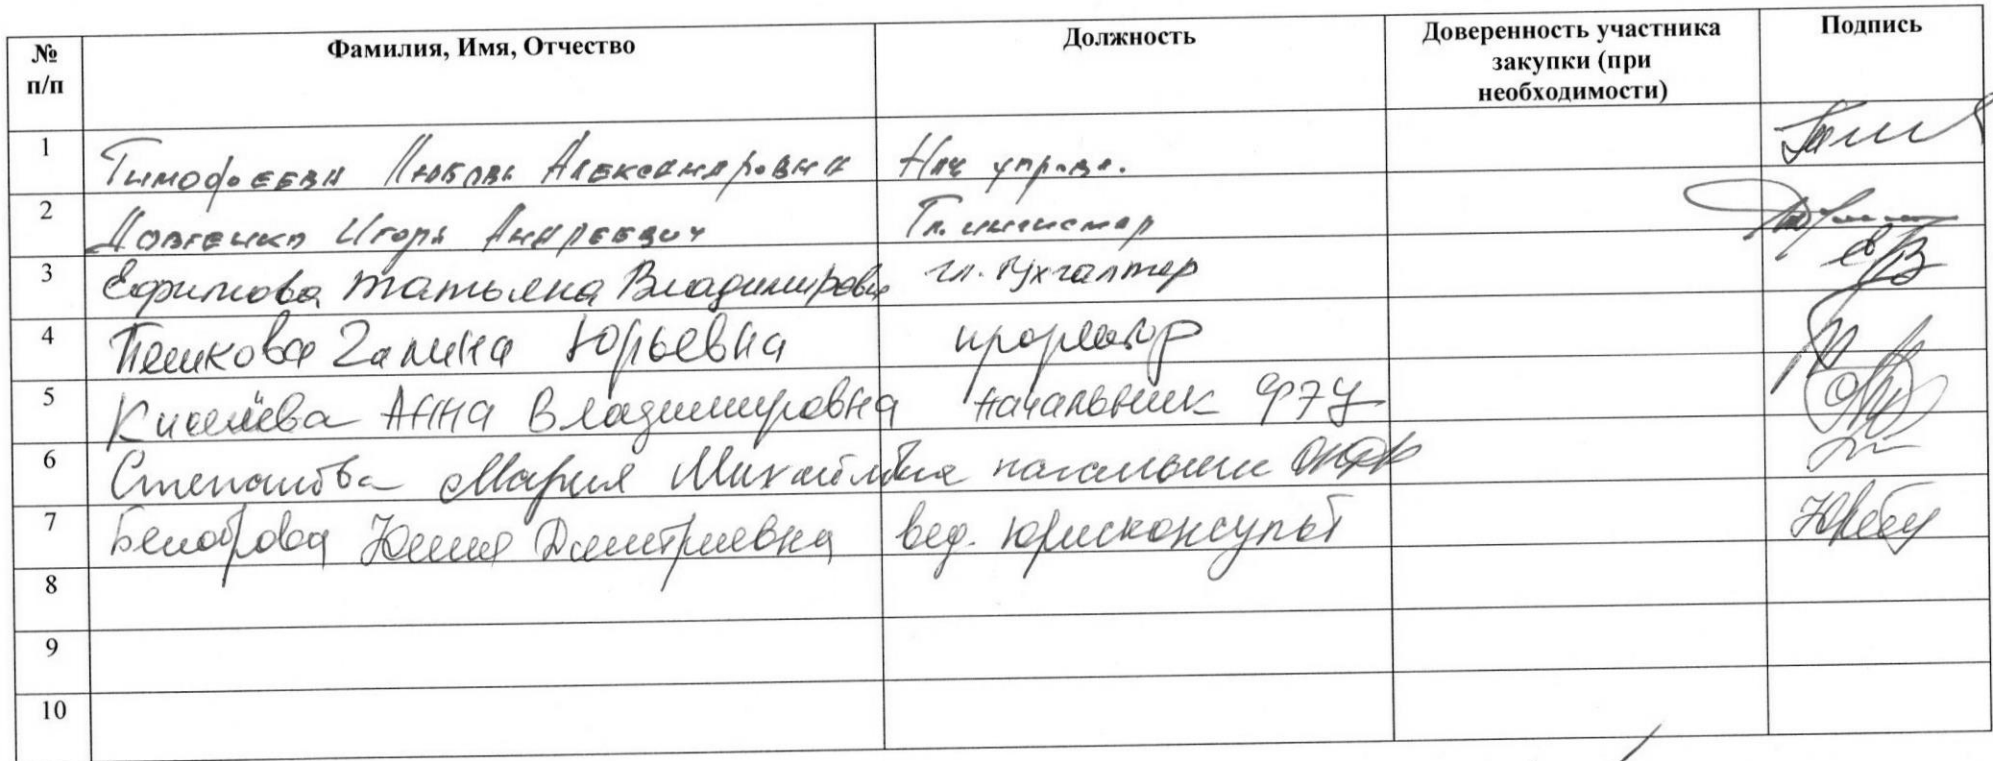 № п/п Фамилия, Имя, Отчество Должность Доверенность участника закупки (при необходимости) Подпись
1 Тимофеева Любовь Александровна Нач управл.
2 Довгенко Игорь Андреевич Гл. инженер
3 Ефимова Татьяна Владимировна гл. бухгалтер
4 Пешкова Галина Юрьевна проректор
5 Киселёва Анна Владимировна начальник ФЭУ
6 Степанова Мария Михайловна начальник
7 Юлия Дмитриевна вед. юрисконсульт
8
9
10